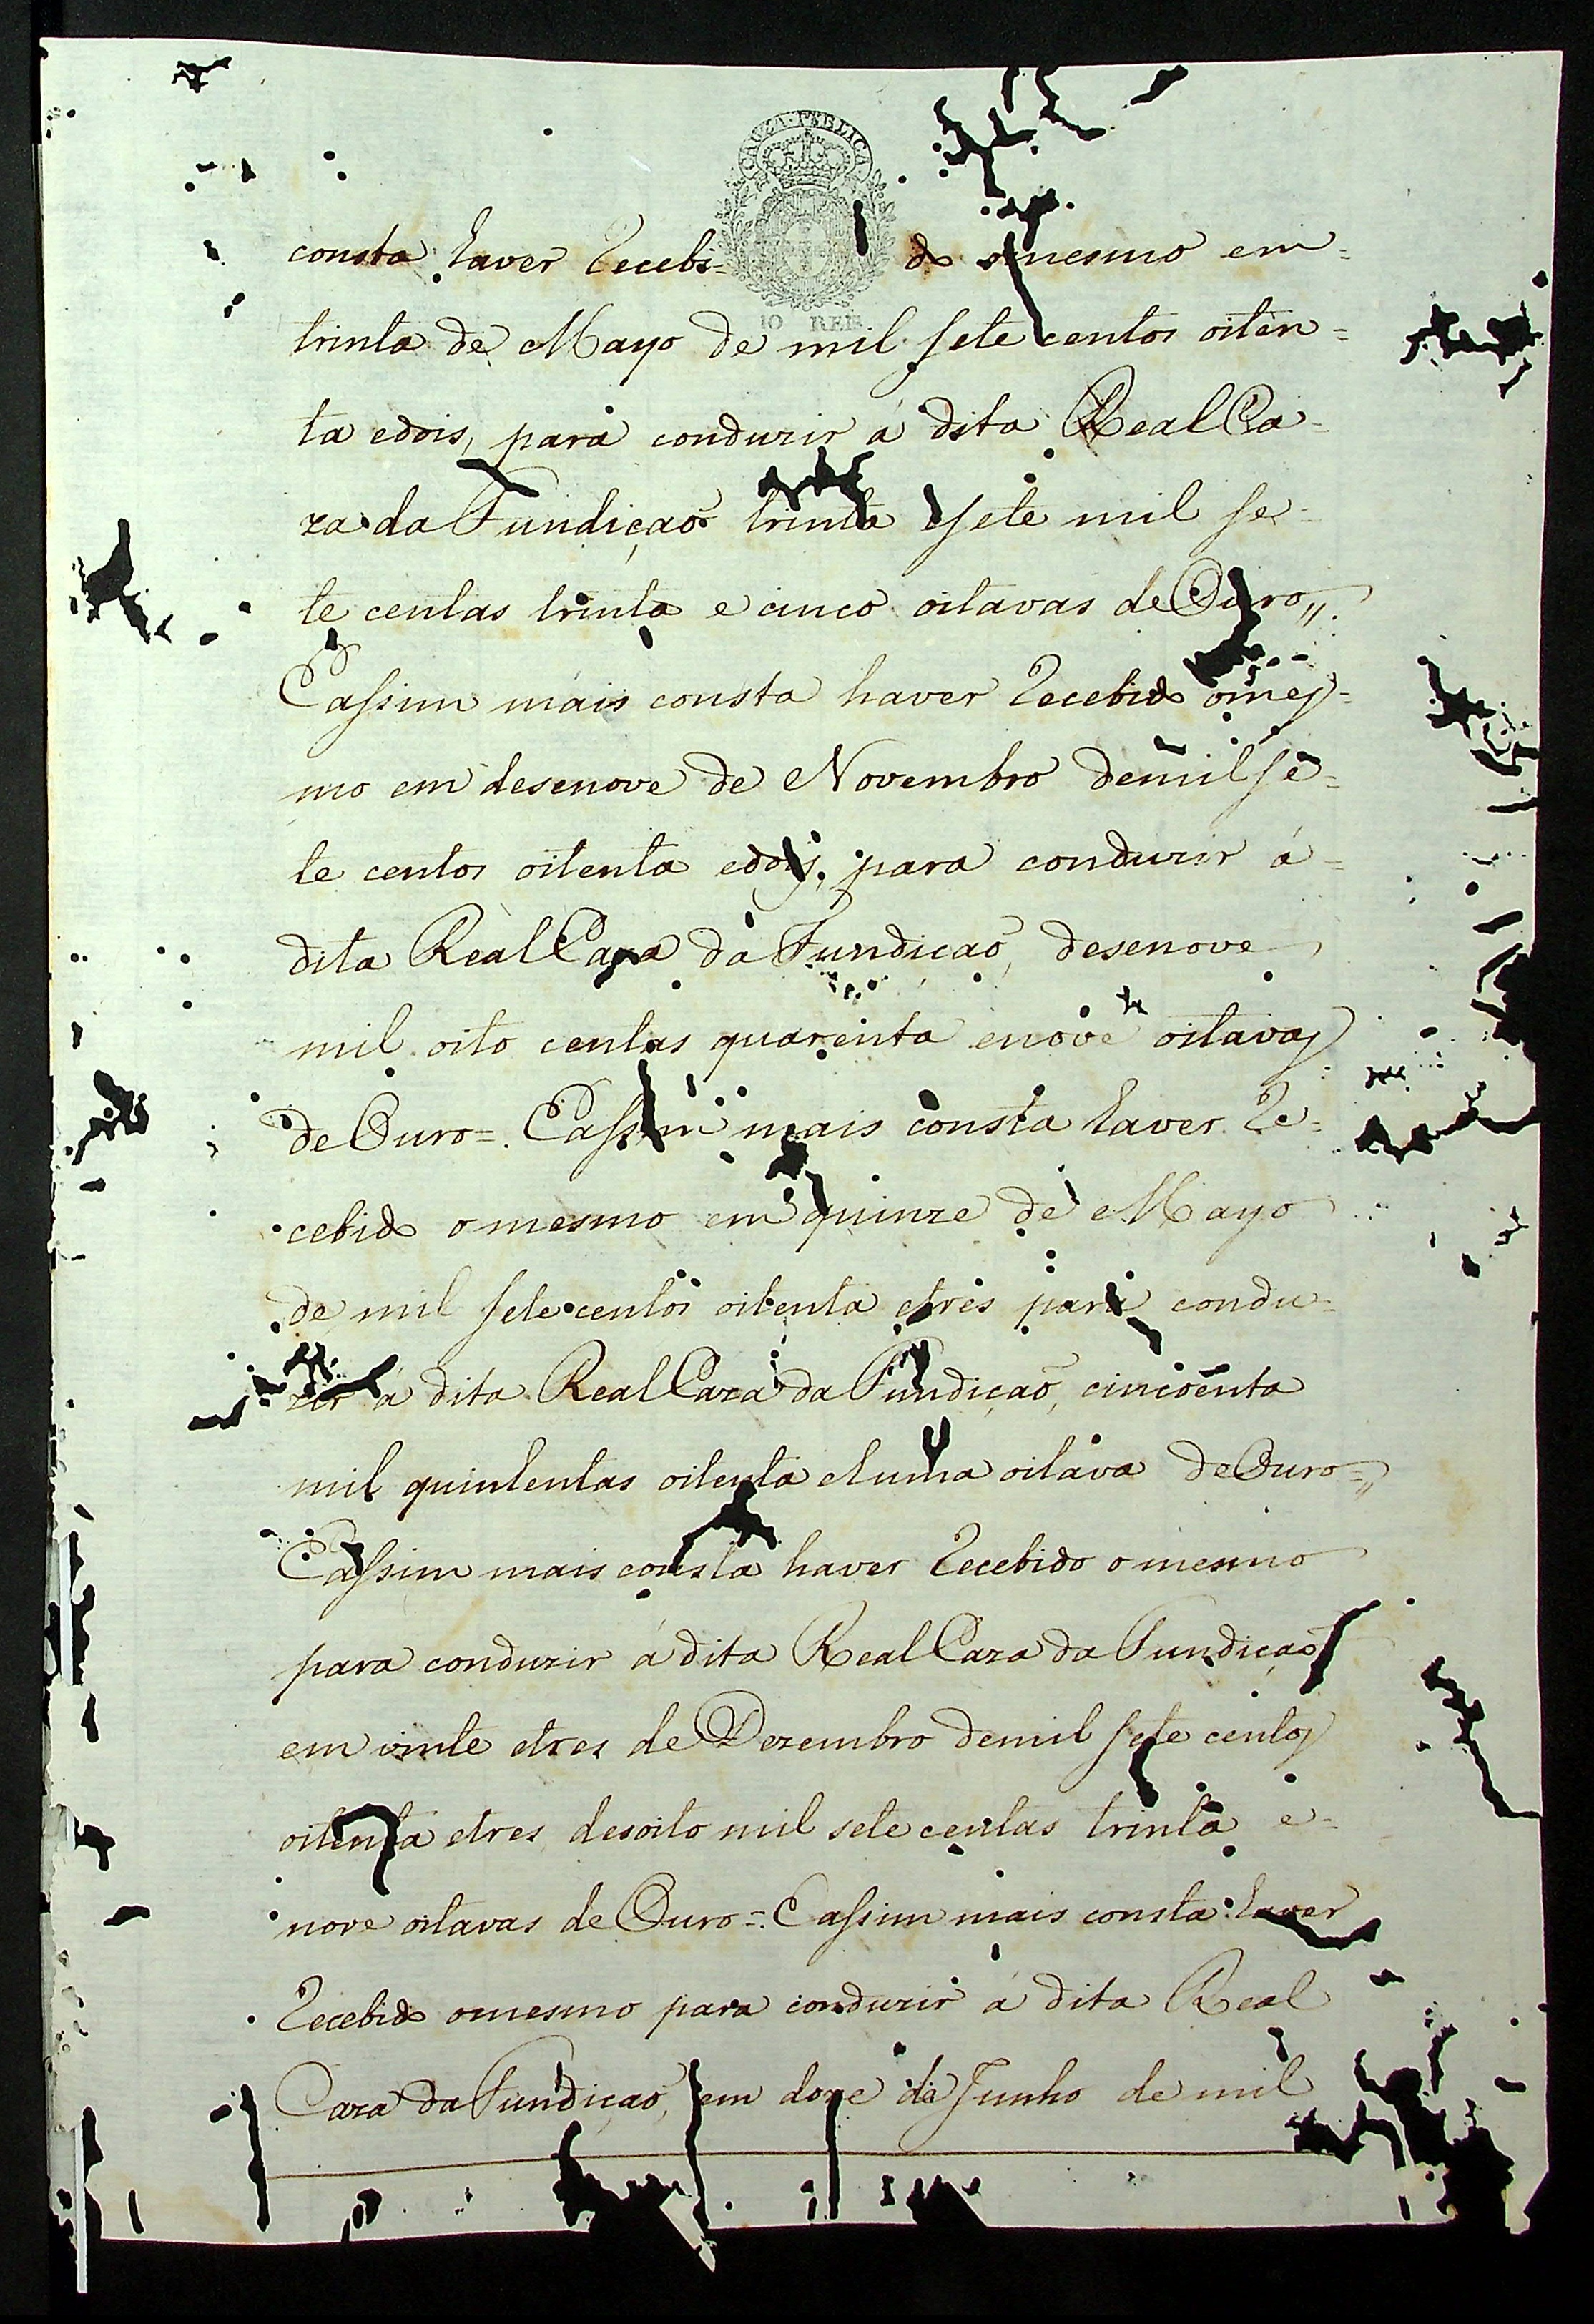 CAUZA PUBLICA
10 REIS.
consta haver Recebi= do o mesmo em=
trinta de Mayo de mil sete centos oiten=
ta edois, para conduzir á dita Real Ca=
za da Fundiçaõ trinta e sete mil se=
te centas trinta e cinco oitavas de Ouro,,
Eassim mais consta haver Recebido omes=
mo em desenove de Novembro demil se=
te centos oitenta edois, para conduzir á=
dita Real Caza da Fundiçaõ, desenove
mil oito centas quarenta enove oitavas
de Ouro=. Eassim mais consta haver Re=
cebido omesmo em quinze de Mayo
de mil sete centos oitenta etres para condu=
zir á dita Real Caza da Fundiçaõ, cincoenta
mil quinhentas oitenta ehuma oitava de Ouro=,,
Eassim mais consta haver Recebido omesmo
para conduzir á dita Real Caza da Fundiçaõ
em vinte etres de Dezembro demil sete centos
oitenta etres, desoito mil sete centas trinta e=
nove oitavas de Ouro=. Eassim mais consta haver
Recebido omesmo para conduzir á dita Real
Caza da Fundiçaõ, em doze de Junho de mil